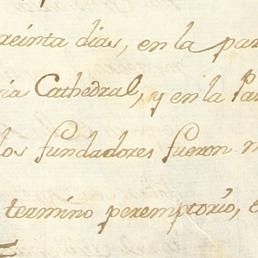 reinta dias, en la par
ria Cathedral, y en la Pa
los fundadores fueron n
termino peremptorio, e